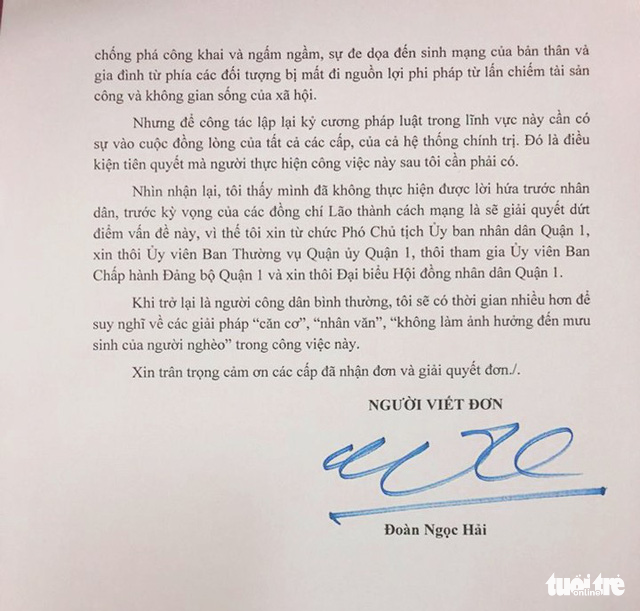 chống phá công khai và ngấm ngầm, sự đe dọa đến sinh mạng của bản thân và
gia đình từ phía các đối tượng bị mất đi nguồn lợi phi pháp từ lấn chiếm tài sản
công và không gian sống của xã hội.
Nhưng để công tác lập lại kỷ cương pháp luật trong lĩnh vực này cần có
sự vào cuộc đồng lòng của tất cả các cấp, của cả hệ thống chính trị. Đó là điều
kiện tiên quyết mà người thực hiện công việc này sau tôi cần phải có.
Nhìn nhận lại, tôi thấy mình đã không thực hiện được lời hứa trước nhân
dân, trước kỳ vọng của các đồng chí Lão thành cách mạng là sẽ giải quyết dứt
điểm vấn đề này, vì thế tôi xin từ chức Phó Chủ tịch Ủy ban nhân dân Quận 1,
xin thôi Ủy viên Ban Thường vụ Quận ủy Quận 1, thôi tham gia Ủy viên Ban
Chấp hành Đảng bộ Quận 1 và xin thôi Đại biểu Hội đồng nhân dân Quận 1.
Khi trở lại là người công dân bình thường, tôi sẽ có thời gian nhiều hơn để
suy nghĩ về các giải pháp “căn cơ”, “nhân văn”, “không làm ảnh hưởng đến mưu
sinh của người nghèo” trong công việc này.
Xin trân trọng cảm ơn các cấp đã nhận đơn và giải quyết đơn./.
NGƯỜI VIẾT ĐƠN
Đoàn Ngọc Hải
tuổi trẻ
online